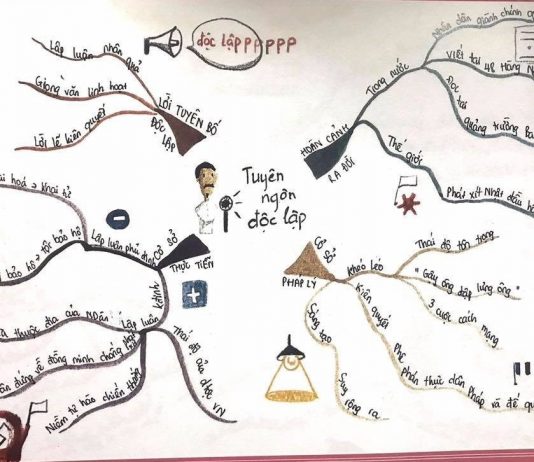 độc lập P P P P P
Lập luận nhân quả
Giọng văn linh hoạt
Lời lẽ kiên quyết
LỜI TUYÊN BỐ
ĐỘC LẬP
Tuyên
ngôn
độc lập
HOÀN CẢNH
RA ĐỜI
Trong nước
Nhân dân giành chính
Viết tại 48 Hàng
Đọc tại
quảng trường Ba
Thế giới
Phát xít Nhật đầu
CƠ SỞ
THỰC TIỄN
Lập luận phủ định
hoá > Khai tử
bảo hộ > tội bảo hộ
Lập luận
k.định
thuộc địa của NDân
đứng về đồng minh chống
Niềm tự hào chiến thắng
Thái độ của
VN
CƠ SỞ
PHÁP LÝ
Khéo léo
Thái độ tôn trọng
" Gậy ông đập lưng ông "
3 cuộc cách mạng
Kiên quyết
Phê phán thực dân
Pháp và đế
Sáng tạo
Suy rộng ra